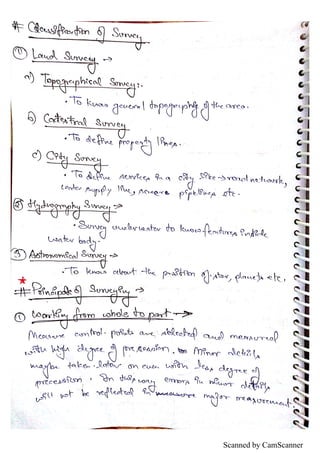 # Classification of Survey
① Land Survey →
a) Topographical Survey:-
• To know general topography of the area.
b) Cadastral Survey
• To define property lines.
c) City Survey
• To define services in a city like → road network,
water supply line, sewage pipelines etc.
② Hydrography Survey →
• Survey underwater to know features inside
water body.
③ Astronomical Survey →
• To know about the position of star, planets etc.
# Principle of Surveying →
① Working from whole to part →
Measure control points are selected and measured
with high degree of precession. Minor details
maybe taken later on even with less degree of
precession. In this way errors in minor details
will not be reflected in major measurement.
Scanned by CamScanner